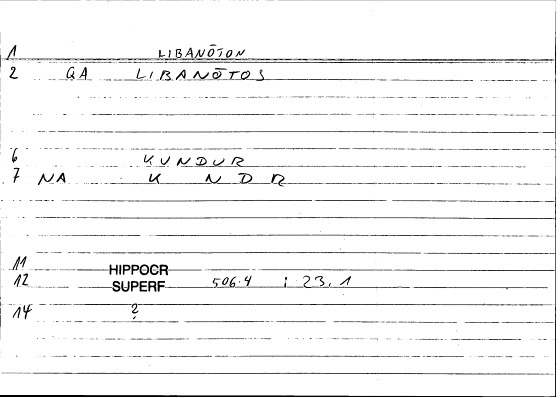 1 LIBANŌTON
2 QA LIBANŌTOS
6 KUNDUR
7 NA K N D R
11 HIPPOCR
12 SUPERF 506.4 : 23.1
14 ?